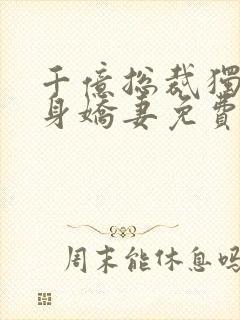 千億總裁獨
身嬌妻免費
周末能休息吗